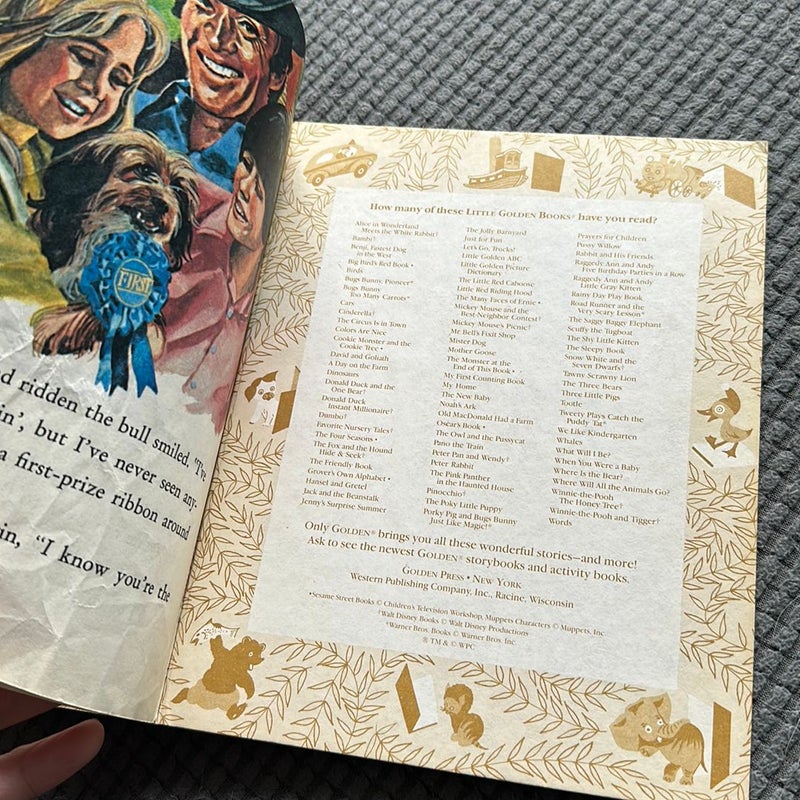 FIRST
d ridden the bull smiled. "I've
in', but I've never seen any-
a first-prize ribbon around
in, "I know you're the
How many of these LITTLE GOLDEN BOOKS® have you read?
Alice in Wonderland
Meets the White Rabbit†
Bambi†
Benji, Fastest Dog
in the West
Big Bird's Red Book •
Birds
Bugs Bunny, Pioneer*
Bugs Bunny
Too Many Carrots*
Cars
Cinderella†
The Circus Is in Town
Colors Are Nice
Cookie Monster and the
Cookie Tree •
David and Goliath
A Day on the Farm
Dinosaurs
Donald Duck and the
One Bear†
Donald Duck
Instant Millionaire†
Dumbo†
Favorite Nursery Tales†
The Four Seasons •
The Fox and the Hound
Hide & Seek†
The Friendly Book
Grover's Own Alphabet •
Hansel and Gretel
Jack and the Beanstalk
Jenny's Surprise Summer
The Jolly Barnyard
Just for Fun
Let's Go, Trucks!
Little Golden ABC
Little Golden Picture
Dictionary
The Little Red Caboose
Little Red Riding Hood
The Many Faces of Ernie •
Mickey Mouse and the
Best Neighbor Contest†
Mickey Mouse's Picnic†
Mr. Bell's Fixit Shop
Mister Dog
Mother Goose
The Monster at the
End of This Book •
My First Counting Book
My Home
The New Baby
Noah's Ark
Old MacDonald Had a Farm
Oscar's Book •
The Owl and the Pussycat
Pano the Train
Peter Pan and Wendy†
Peter Rabbit
The Pink Panther
in the Haunted House
Pinocchio†
The Poky Little Puppy
Porky Pig and Bugs Bunny
Just Like Magic!*
Prayers for Children
Pussy Willow
Rabbit and His Friends
Raggedy Ann and Andy
Five Birthday Parties in a Row
Raggedy Ann and Andy
Little Gray Kitten
Rainy Day Play Book
Road Runner and the
Very Scary Lesson*
The Saggy Baggy Elephant
Scuffy the Tugboat
The Shy Little Kitten
The Sleepy Book
Snow White and the
Seven Dwarfs†
Tawny Scrawny Lion
The Three Bears
Three Little Pigs
Tootle
Tweety Plays Catch the
Puddy Tat*
We Like Kindergarten
Whales
What Will I Be?
When You Were a Baby
Where Is the Bear?
Where Will All the Animals Go?
Winnie-the-Pooh
The Honey Tree†
Winnie-the-Pooh and Tigger†
Words
Only GOLDEN® brings you all these wonderful stories—and more!
Ask to see the newest GOLDEN® storybooks and activity books.
GOLDEN PRESS • NEW YORK
Western Publishing Company, Inc., Racine, Wisconsin
•Sesame Street Books © Children's Television Workshop, Muppets Characters © Muppets, Inc.
†Walt Disney Books © Walt Disney Productions
*Warner Bros. Books © Warner Bros. Inc.
® TM & © WPC